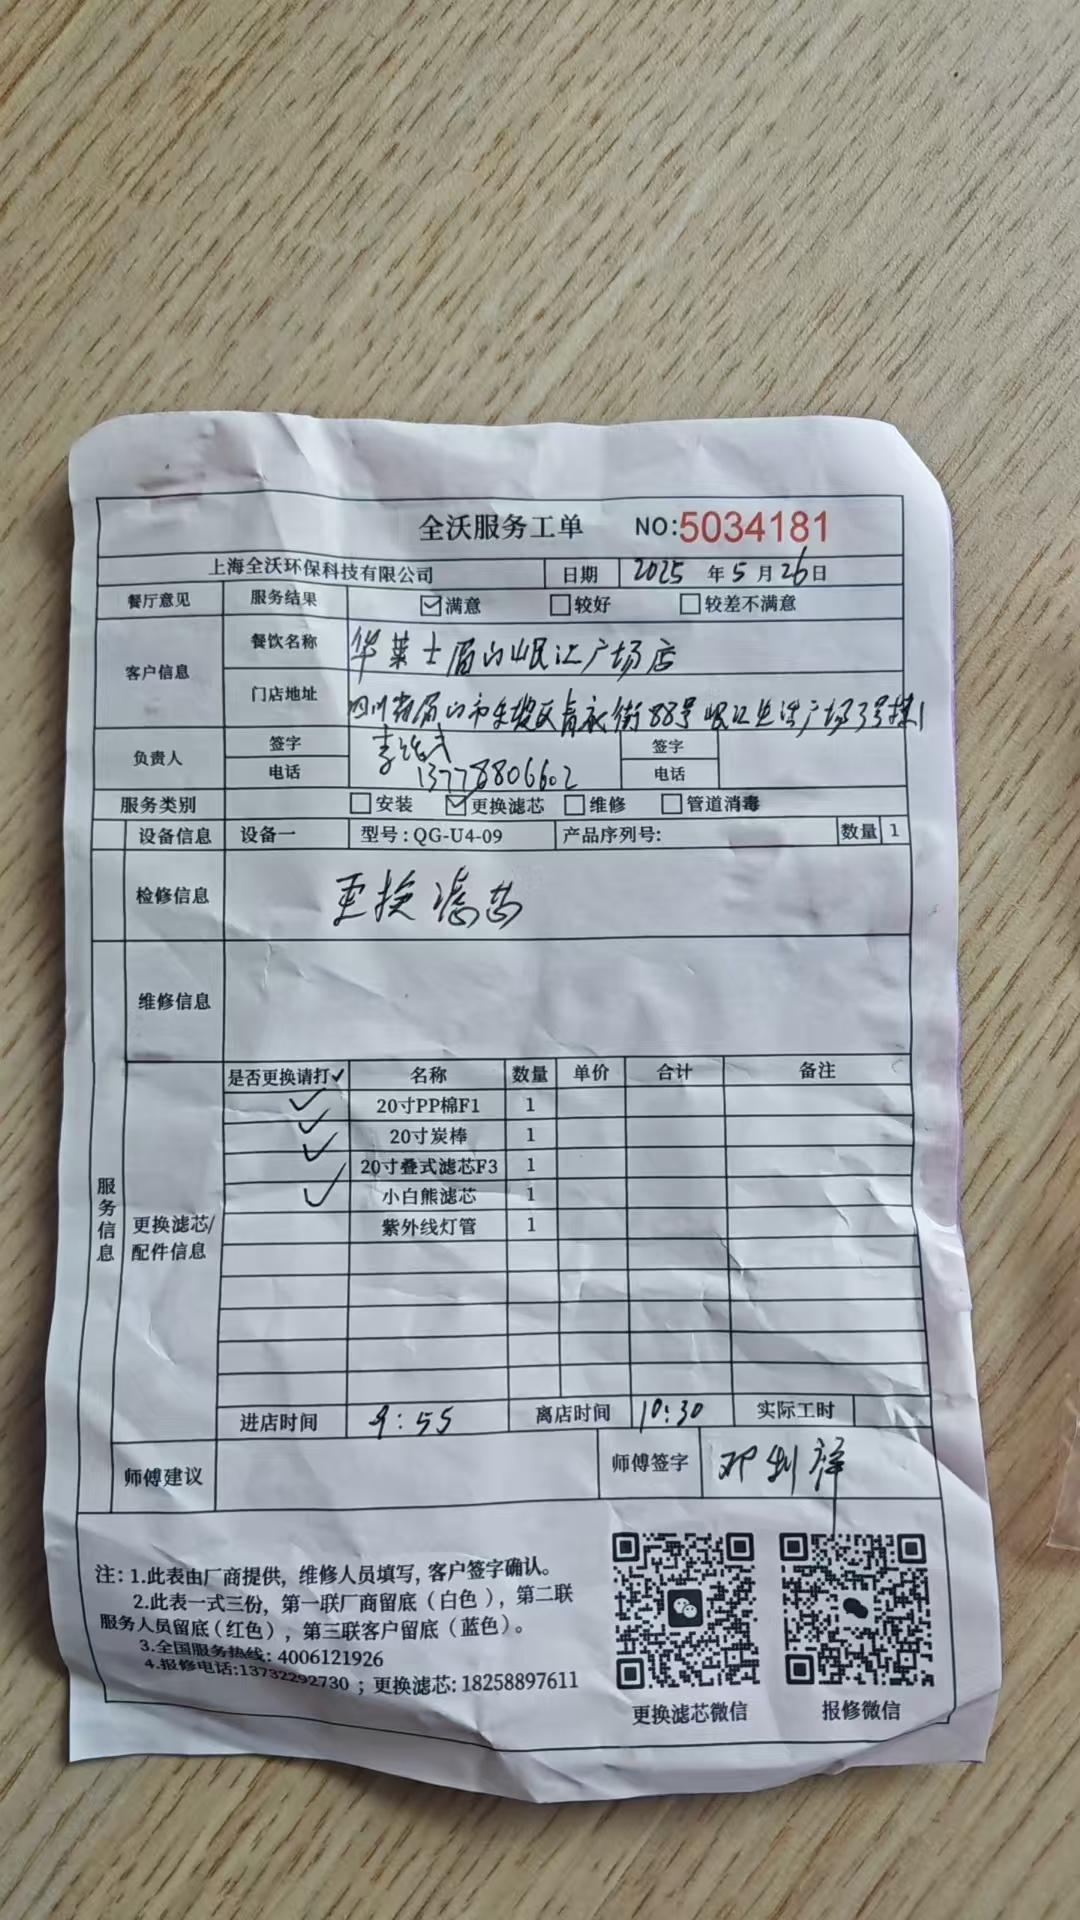 全沃服务工单 NO:5034181
上海全沃环保科技有限公司 日期 2025 年 5 月 26 日
餐厅意见 服务结果 ☑满意 ☐较好 ☐较差不满意
客户信息 餐饮名称 华莱士眉山岷江广场店
门店地址 四川省眉山市东坡区青衣街88号岷江生活广场3号楼1
负责人 签字 李 签字
电话 13778806602 电话
服务类别 ☐安装 ☑更换滤芯 ☐维修 ☐管道消毒
设备信息 设备一 型号:QG-U4-09 产品序列号: 数量 1
检修信息 更换滤芯
维修信息
服务信息
更换滤芯/配件信息
是否更换请打✓ 名称 数量 单价 合计 备注
✓ 20寸PP棉F1 1
✓ 20寸炭棒 1
✓ 20寸叠式滤芯F3 1
✓ 小白熊滤芯 1
紫外线灯管 1
进店时间 9:55 离店时间 10:30 实际工时
师傅建议 师傅签字 邓
注: 1.此表由厂商提供, 维修人员填写, 客户签字确认。
2.此表一式三份, 第一联厂商留底(白色), 第二联
服务人员留底(红色), 第三联客户留底(蓝色)。
3.全国服务热线: 4006121926
4.报修电话:13732292730 ; 更换滤芯: 18258897611
更换滤芯微信 报修微信